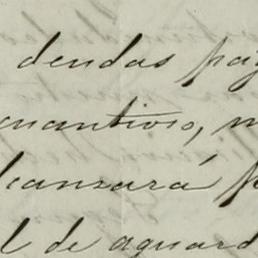 dendas pag
enantioso, m
lcansará p
l de aguard